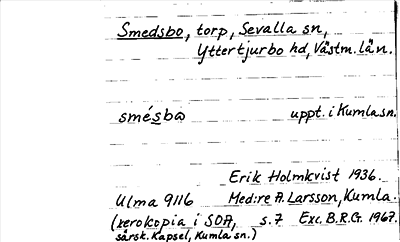 Smedsbo, torp, Sevalla sn,
Yttertjurbo hd, Västm. län.
smésbω uppt. i Kumla sn.
Erik Holmkvist 1936.
Ulma 9116 Med:re A. Larsson, Kumla.
(xerokopia i SOA, s. 7 Exc. B.R.G. 1967.
särsk. Kapsel, Kumla sn.)